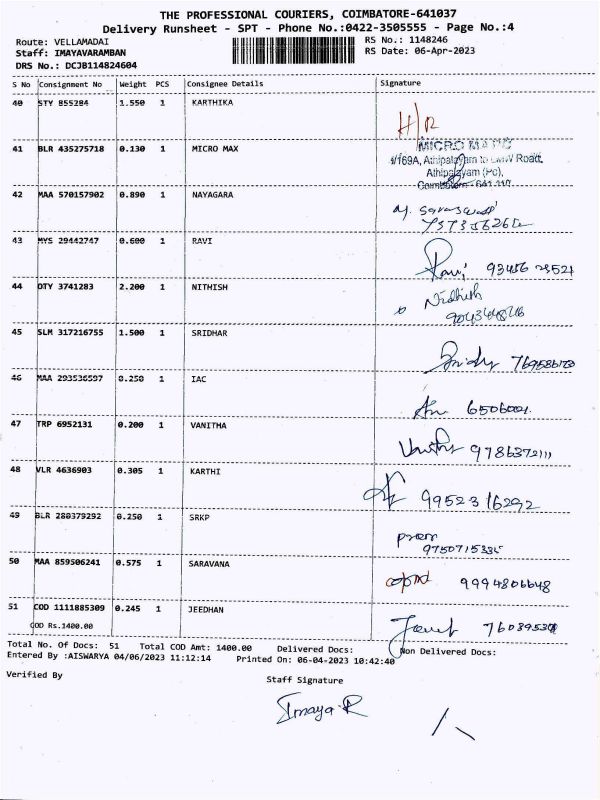 THE PROFESSIONAL COURIERS, COIMBATORE-641037
Delivery Runsheet - SPT - Phone No.:0422-3505555 - Page No.:4
Route: VELLAMADAI
RS No.: 1148246
Staff: IMAYAVARAMBAN
RS Date: 06-Apr-2023
DRS No.: DCJB114824604
S No Consignment No Weight PCS Consignee Details Signature
40 STY 855284 1.550 1 KARTHIKA
H/R
41 BLR 435275718 0.130 1 MICRO MAX
MICRO
Athipalayam to Road,
Athipalayam (Po),
Coimbatore - 641 110
42 MAA 570157902 0.890 1 NAYAGARA
43 MYS 29442747 0.600 1 RAVI
Ravi
44 OTY 3741283 2.200 1 NITHISH
Nidhish
45 SLM 317216755 1.500 1 SRIDHAR
46 MAA 293536597 0.250 1 IAC
47 TRP 6952131 0.200 1 VANITHA
9786372111
48 VLR 4636903 0.305 1 KARTHI
9952316292
49 BLR 280379292 0.250 1 SRKP
9750715335
50 MAA 859506241 0.575 1 SARAVANA
9994806648
51 COD 1111885309 0.245 1 JEEDHAN
COD Rs.1400.00
Total No. Of Docs: 51 Total COD Amt: 1400.00 Delivered Docs: Non Delivered Docs:
Entered By :AISWARYA 04/06/2023 11:12:14 Printed On: 06-04-2023 10:42:40
Verified By
Staff Signature
Imaya R